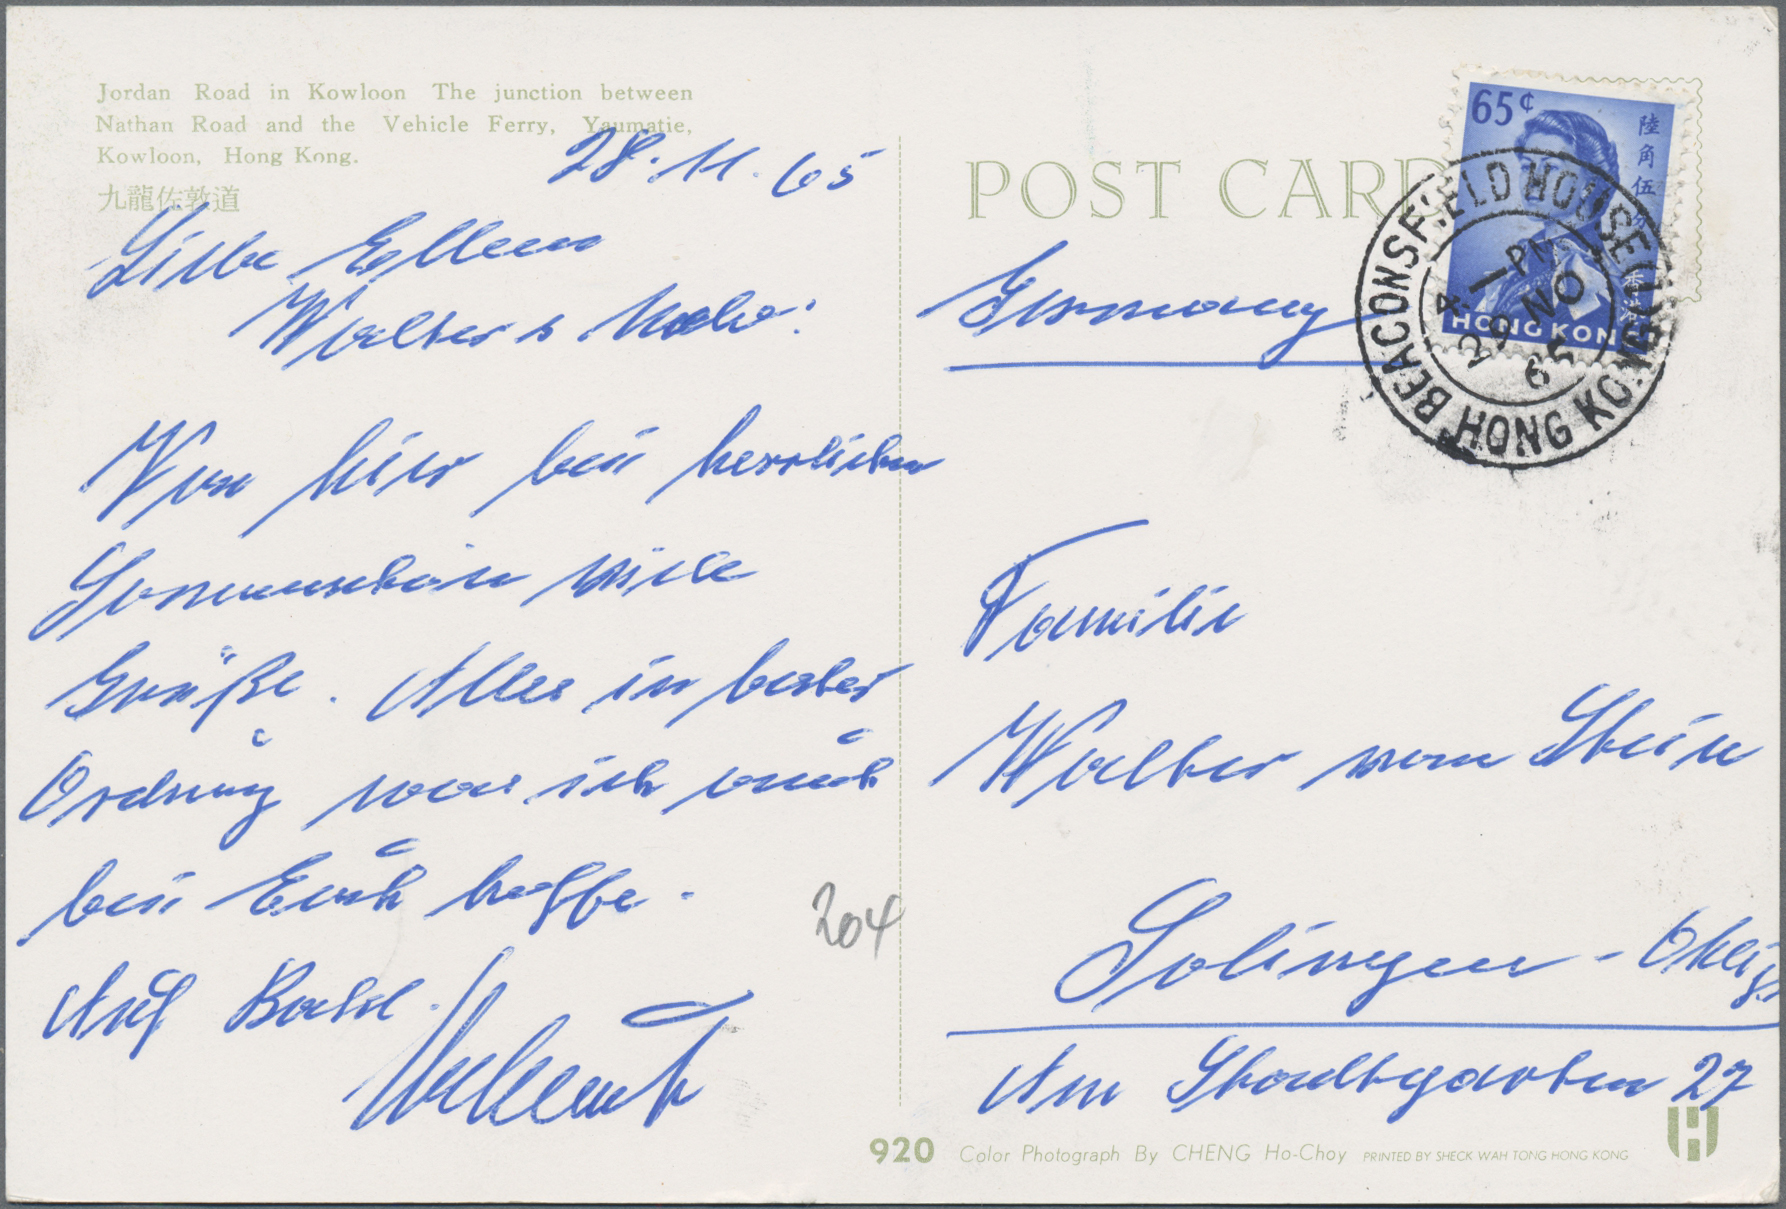 Jordan Road in Kowloon The junction between
Nathan Road and the Vehicle Ferry, Yaumatie,
Kowloon, Hong Kong.
九龍佐敦道
28.11.65
Walter
Von hier bei herrlichem
Sonnenschein viele
Grüße. Alles in bester
Ordnung was ich auch
bei Euch hoffe.
Auf Bald.
204
POST CARD
65¢
陸角伍分
HONG KONG
BEACONSFIELD HOUSE
4-PM
29 NO
65
HONG KONG
Germany
Familie
Walter vom Stein
Solingen - Ohligs
Am Stadtgarten 27
920 Color Photograph By CHENG Ho-Choy PRINTED BY SHECK WAH TONG HONG KONG